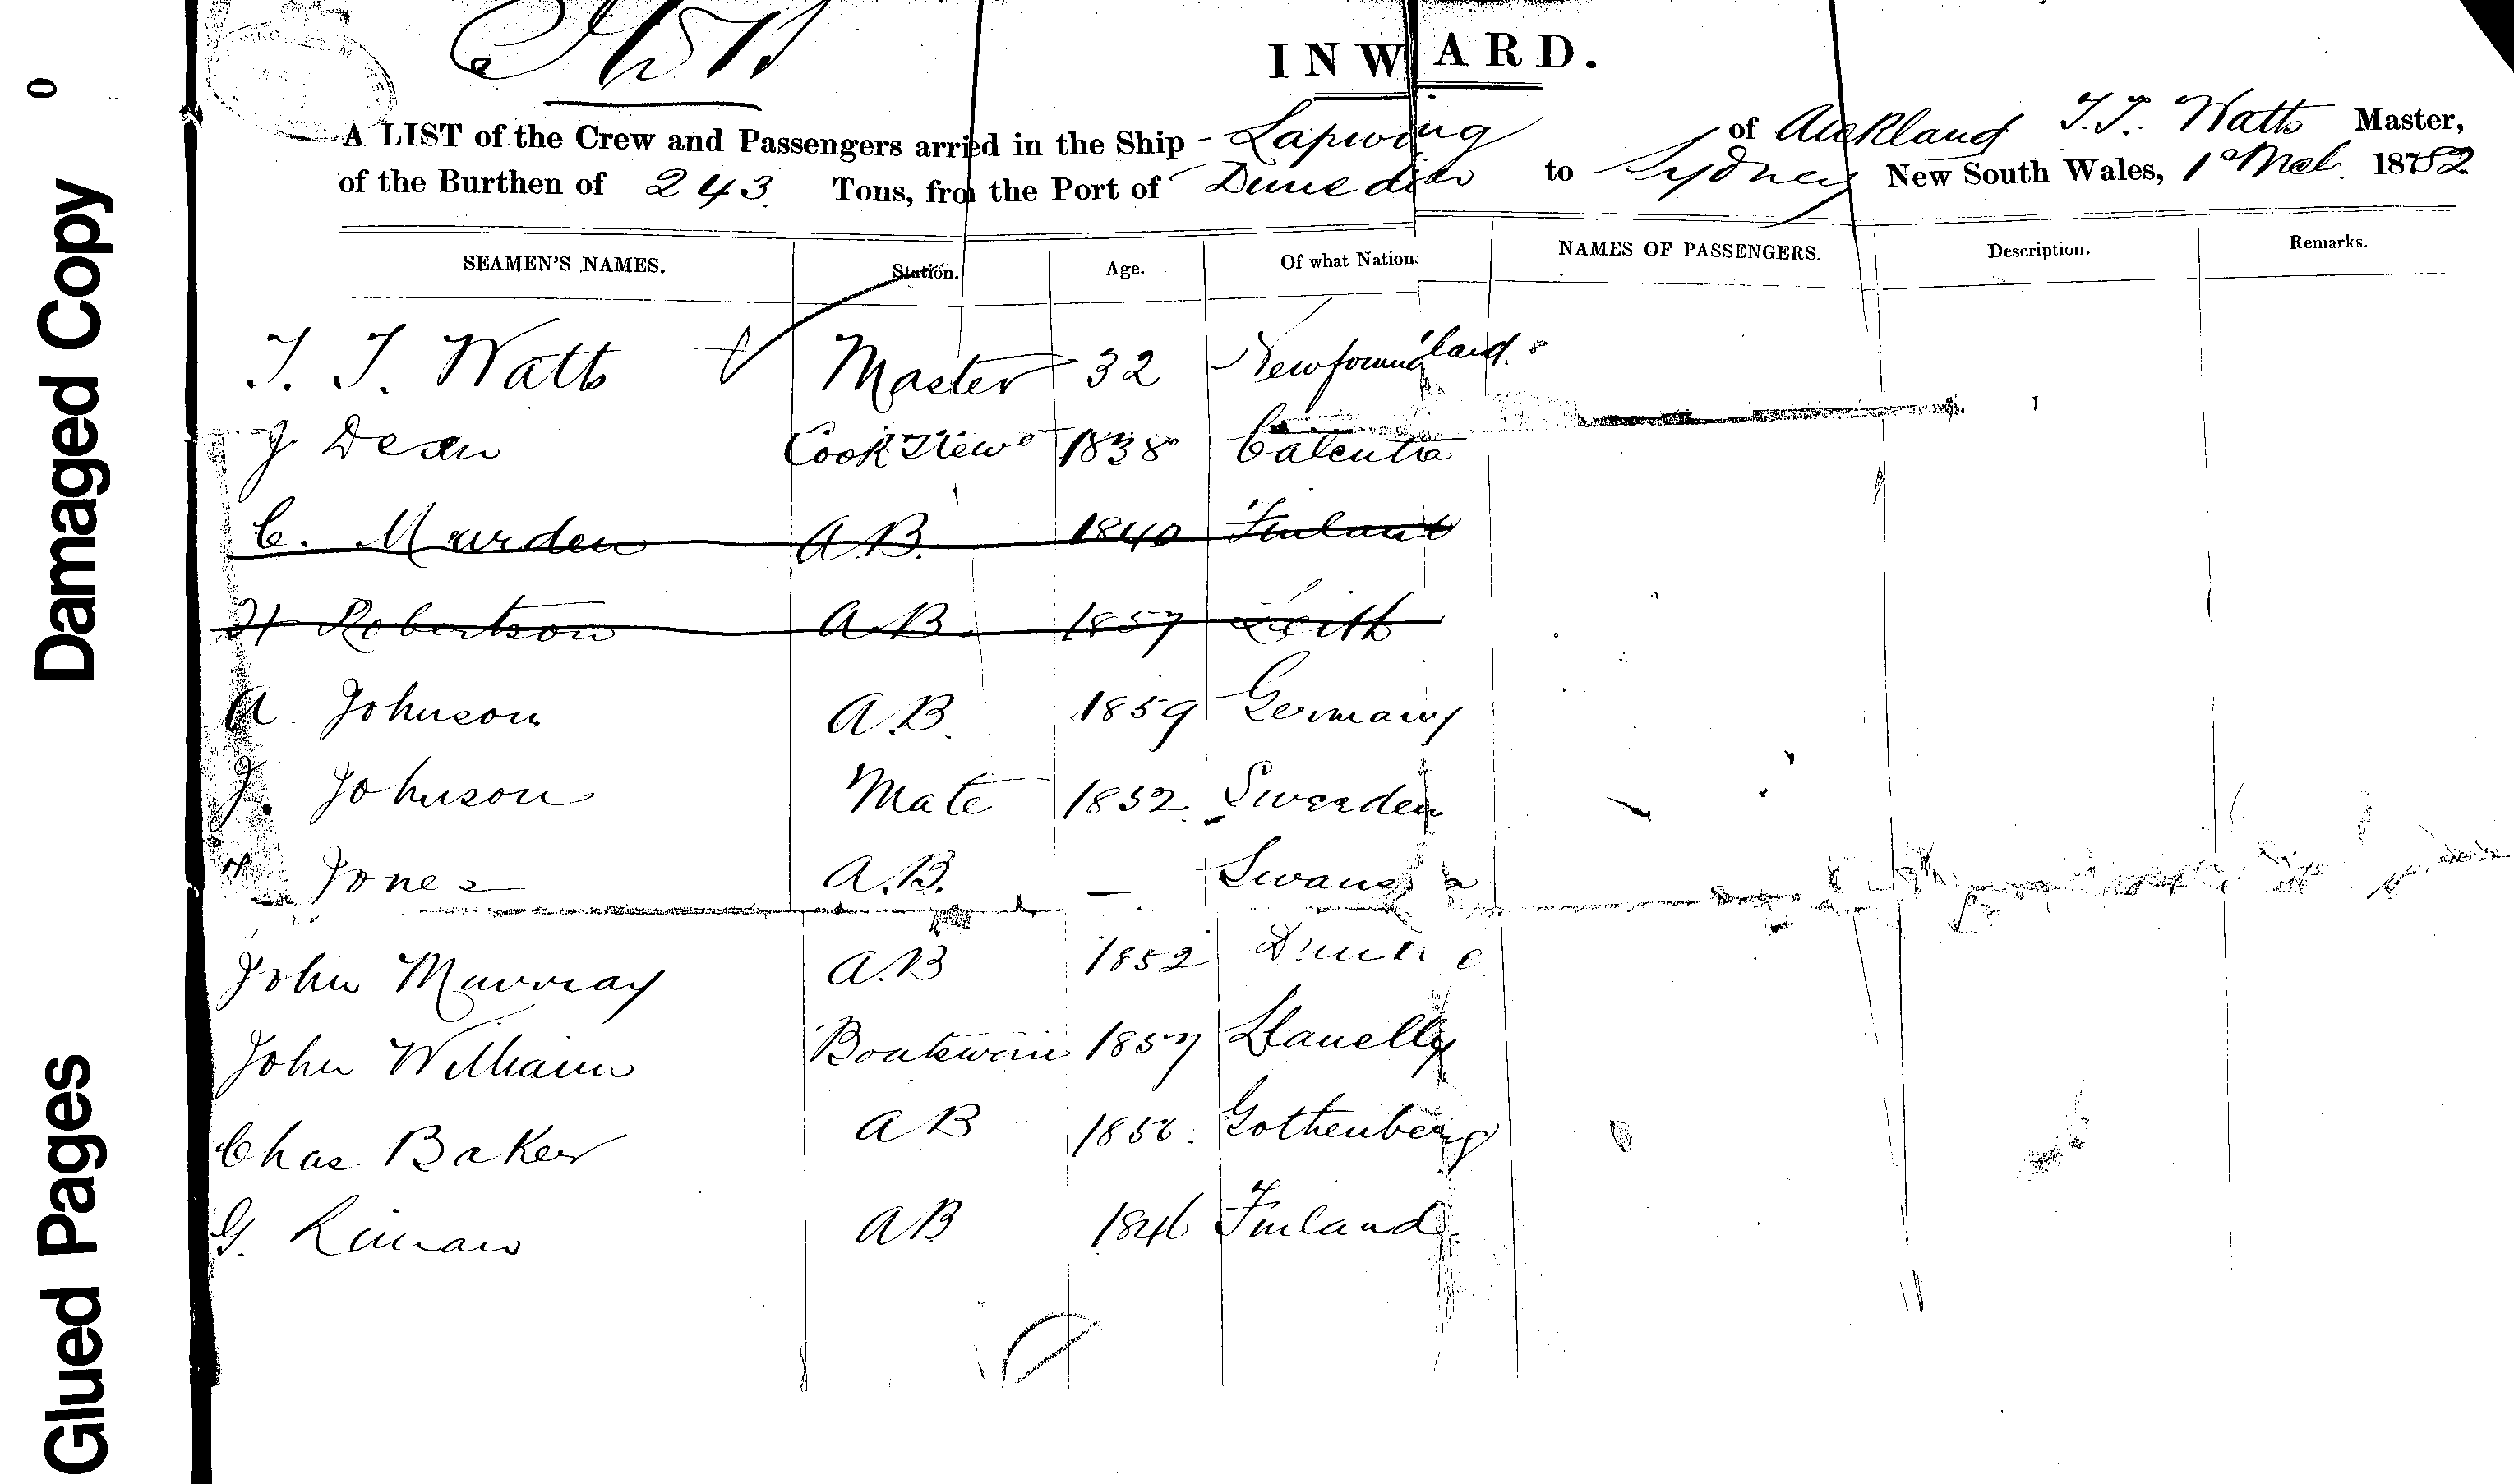 0
Damaged Copy
Glued Pages
INWARD.
A LIST of the Crew and Passengers arried in the Ship - Lapwing of Auckland T.T. Watts Master,
of the Burthen of 243 Tons, fro the Port of Dunedin to Sydney New South Wales, 1 1882
SEAMEN'S NAMES. Station. Age. Of what Nation. NAMES OF PASSENGERS. Description. Remarks.
T. T. Watts Master 32 Newfoundland.
J Dean Cook & Stewd 1838 Calcutta
C. Marden A.B. 1840 Finland
H Robertson A.B. 1857 Leith
A. Johnson A.B. 1859 Germany
J. Johnson Mate 1852 Sweeden
Jones A.B. — Swansea
John Murray A.B 1852
John William Boatswain 1857 Llanelly
Chas Baker A B 1856. Gothenberg
G. A B 1846 Finland.